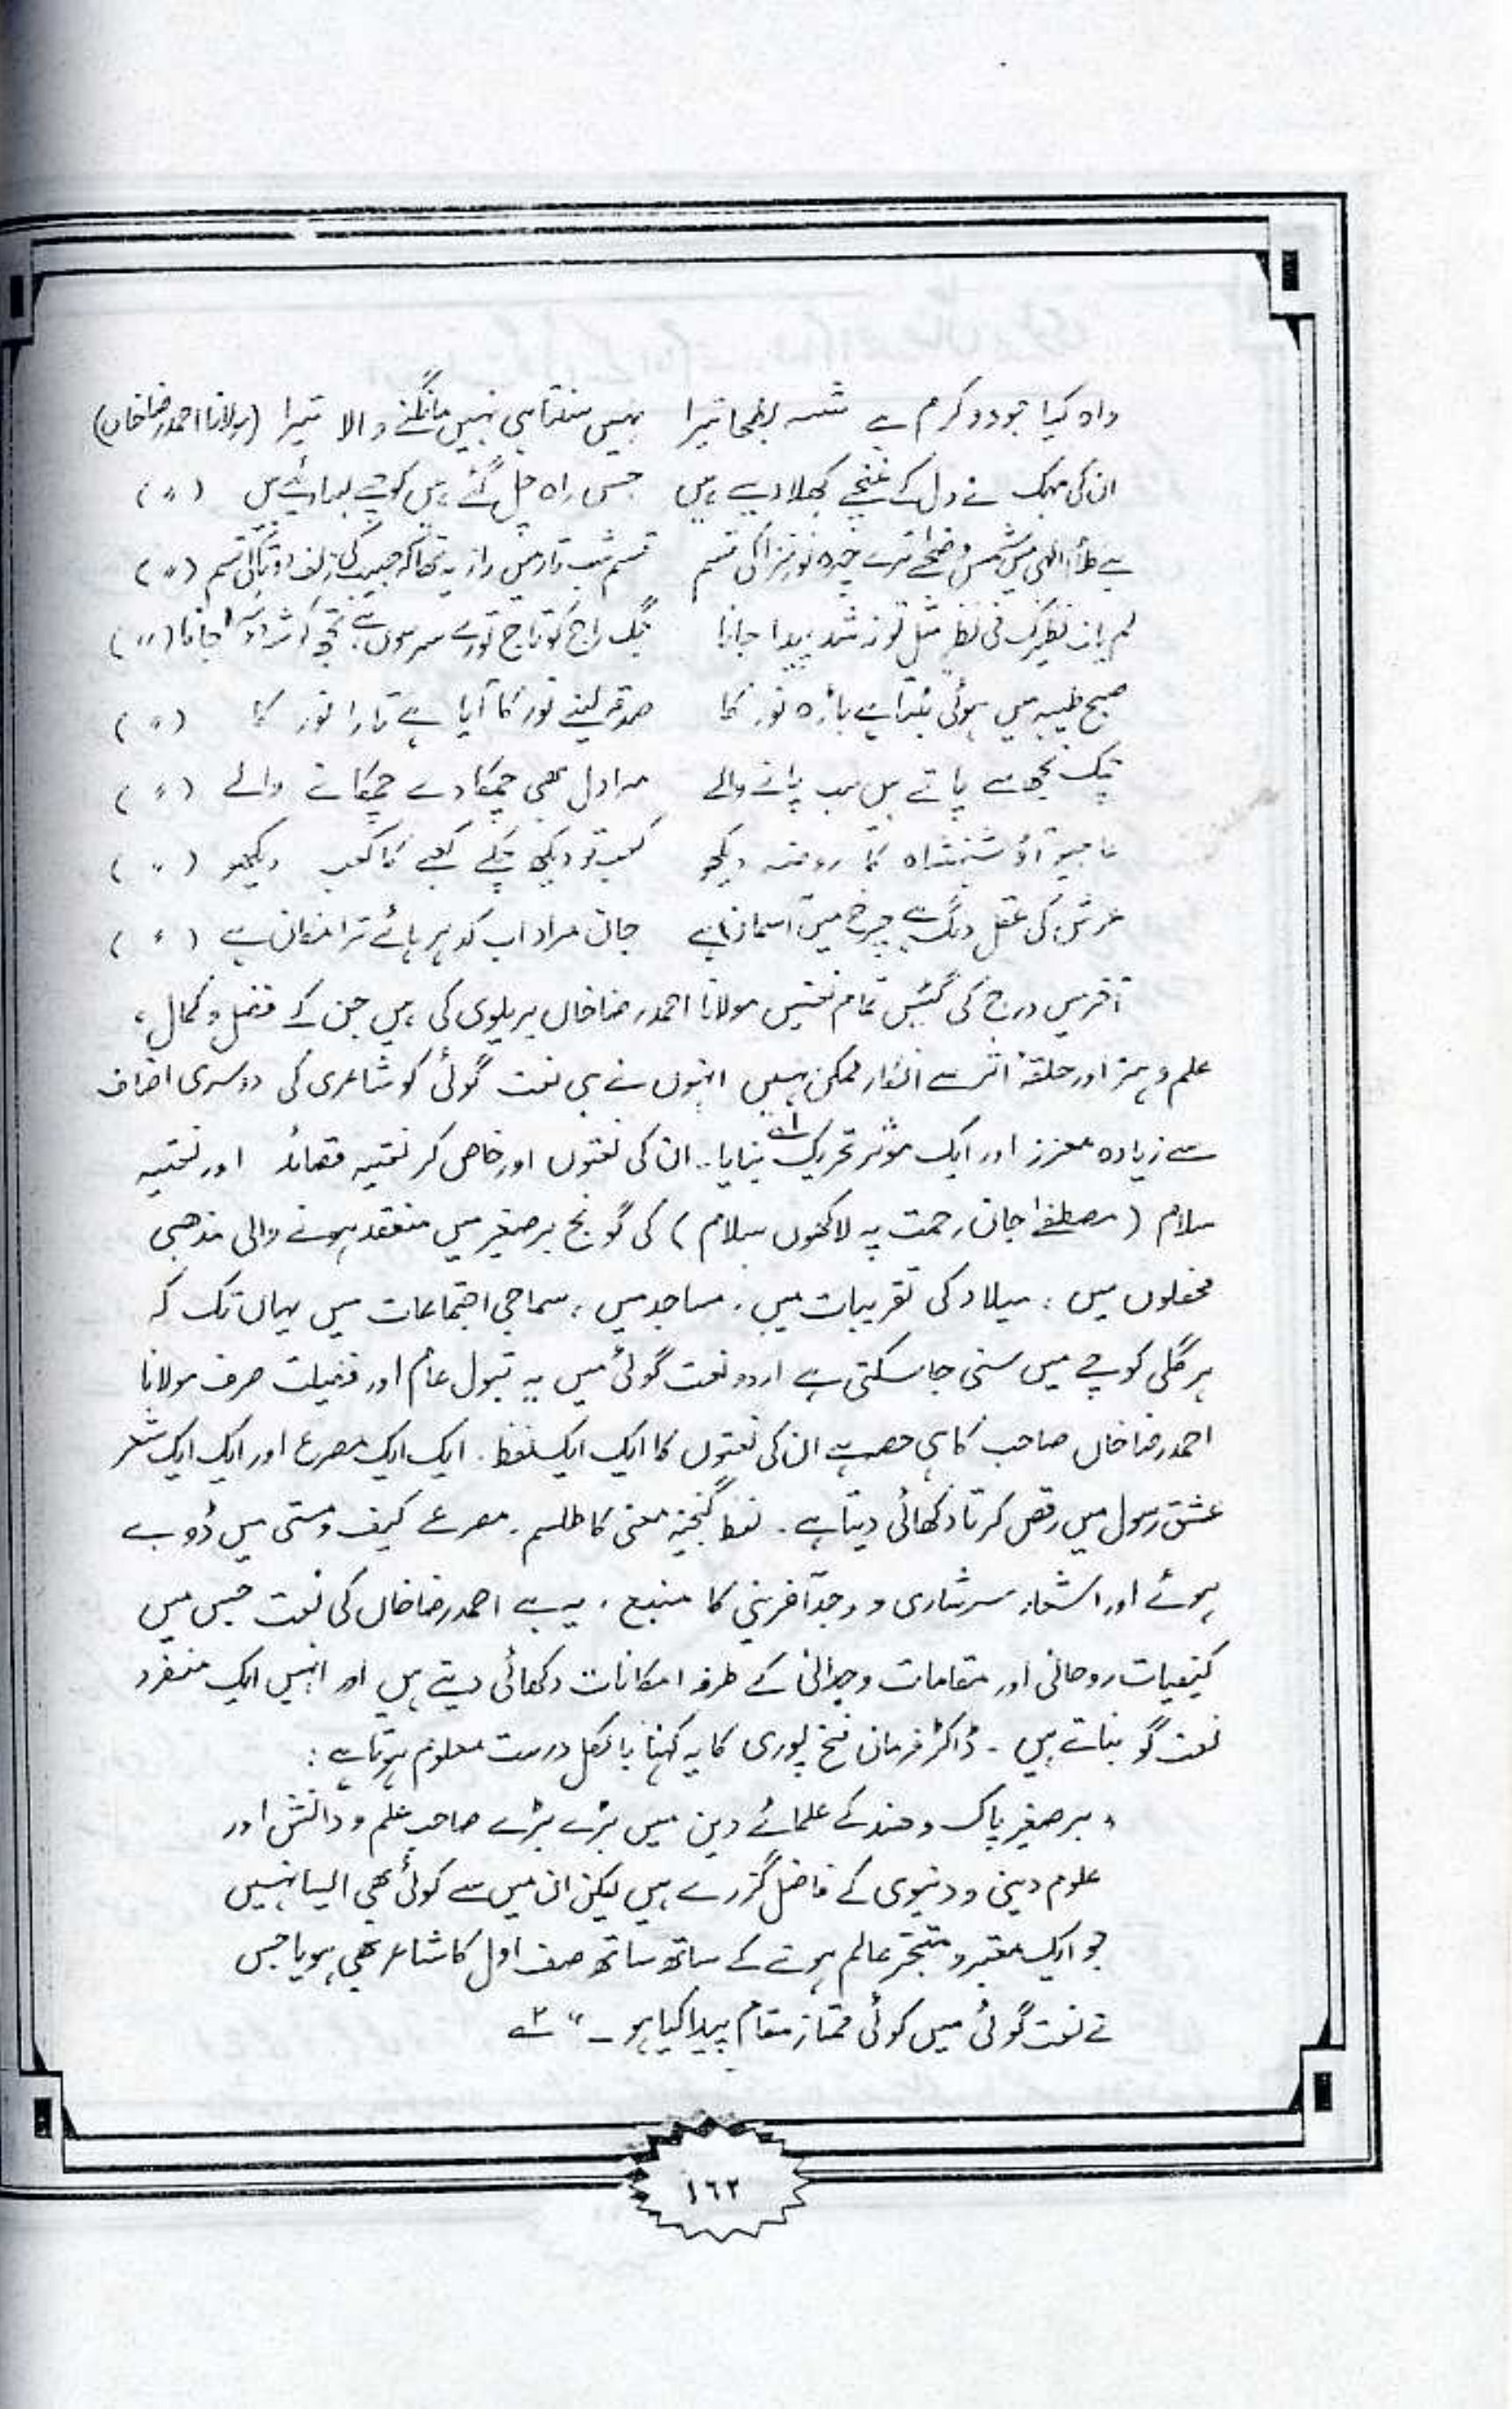 واہ کیا جود و کرم ہے شہ بطحا تیرا نہیں سنتا ہی نہیں مانگنے والا تیرا (مولانا احمد رضا خاں)
ان کی مہک نے دل کے غنچے کھلا دیے ہیں جس راہ چل گئے ہیں کوچے بسا دیئے ہیں (〃)
ہے کلام الٰہی میں شمس و ضحٰے ترے چہرہ نور فزا کی قسم قسم شب تار میں راز یہ تھا کہ حبیب کی زلف دوتا کی قسم (〃)
لم یات نظیرک فی نظر مثل تو نہ شد پیدا جانا جگ راج کو تاج تورے سر سوں ہے تجھ کو شہ دوسرا جانا (〃)
صبح طیبہ میں ہوئی بٹتا ہے باڑہ نور کا صدقہ لینے نور کا آیا ہے تارا نور کا (〃)
چمک تجھ سے پاتے ہیں سب پانے والے مرا دل بھی چمکا دے چمکانے والے (〃)
حاجیو آؤ شہنشاہ کا روضہ دیکھو کعبہ تو دیکھ چکے کعبے کا کعبہ دیکھو (〃)
عرش کی عقل دنگ ہے چرخ میں آسمان ہے جان مراد اب کدھر ہائے ترا مکان ہے (〃)
آخر میں درج کی گئیں تمام نعتیں مولانا احمد رضا خاں بریلوی کی ہیں جن کے فضل و کمال ،
علم و ہنر اور حلقۂ اثر سے انکار ممکن نہیں انہوں نے ہی نعت گوئی کو شاعری کی دوسری اصناف
سے زیادہ معزز اور ایک موثر تحریک بنایا۔ ۱؎ ان کی نعتوں اور خاص کر نعتیہ قصائد اور نعتیہ
سلام (مصطفےٰ جان رحمت پہ لاکھوں سلام) کی گونج برصغیر میں منعقد ہونے والی مذہبی
محفلوں میں ، میلاد کی تقریبات میں ، مساجد میں ، سماجی اجتماعات میں یہاں تک کہ
ہر گلی کوچے میں سنی جا سکتی ہے اردو نعت گوئی میں یہ قبول عام اور فضیلت صرف مولانا
احمد رضا خاں صاحب کا ہی حصہ ہے ان کی نعتوں کا ایک ایک لفظ ۔ ایک ایک مصرع اور ایک ایک شعر
عشق رسول میں رقص کرتا دکھائی دیتا ہے ۔ لفظ گنجینہ معنی کا طلسم ۔ مصرعے کیف و مستی میں ڈوبے
ہوئے اور اشعار سرشاری و وجد آفرینی کا منبع ، یہ ہے احمد رضا خاں کی نعت جس میں
کیفیات روحانی اور مقامات وجدانی کے طرفہ امکانات دکھائی دیتے ہیں اور انہیں ایک منفرد
نعت گو بناتے ہیں ۔ ڈاکٹر فرمان فتح پوری کا یہ کہنا بالکل درست معلوم ہوتا ہے :
" برصغیر پاک و ہند کے علمائے دین میں بڑے بڑے صاحب علم و دانش اور
علوم دینی و دنیوی کے فاضل گزرے ہیں لیکن ان میں سے کوئی بھی ایسا نہیں
جو ایک معتبر و متبحر عالم ہونے کے ساتھ ساتھ صف اول کا شاعر بھی ہو یا جس
نے نعت گوئی میں کوئی ممتاز مقام پیدا کیا ہو ۔ " ۲؎
۱۶۲